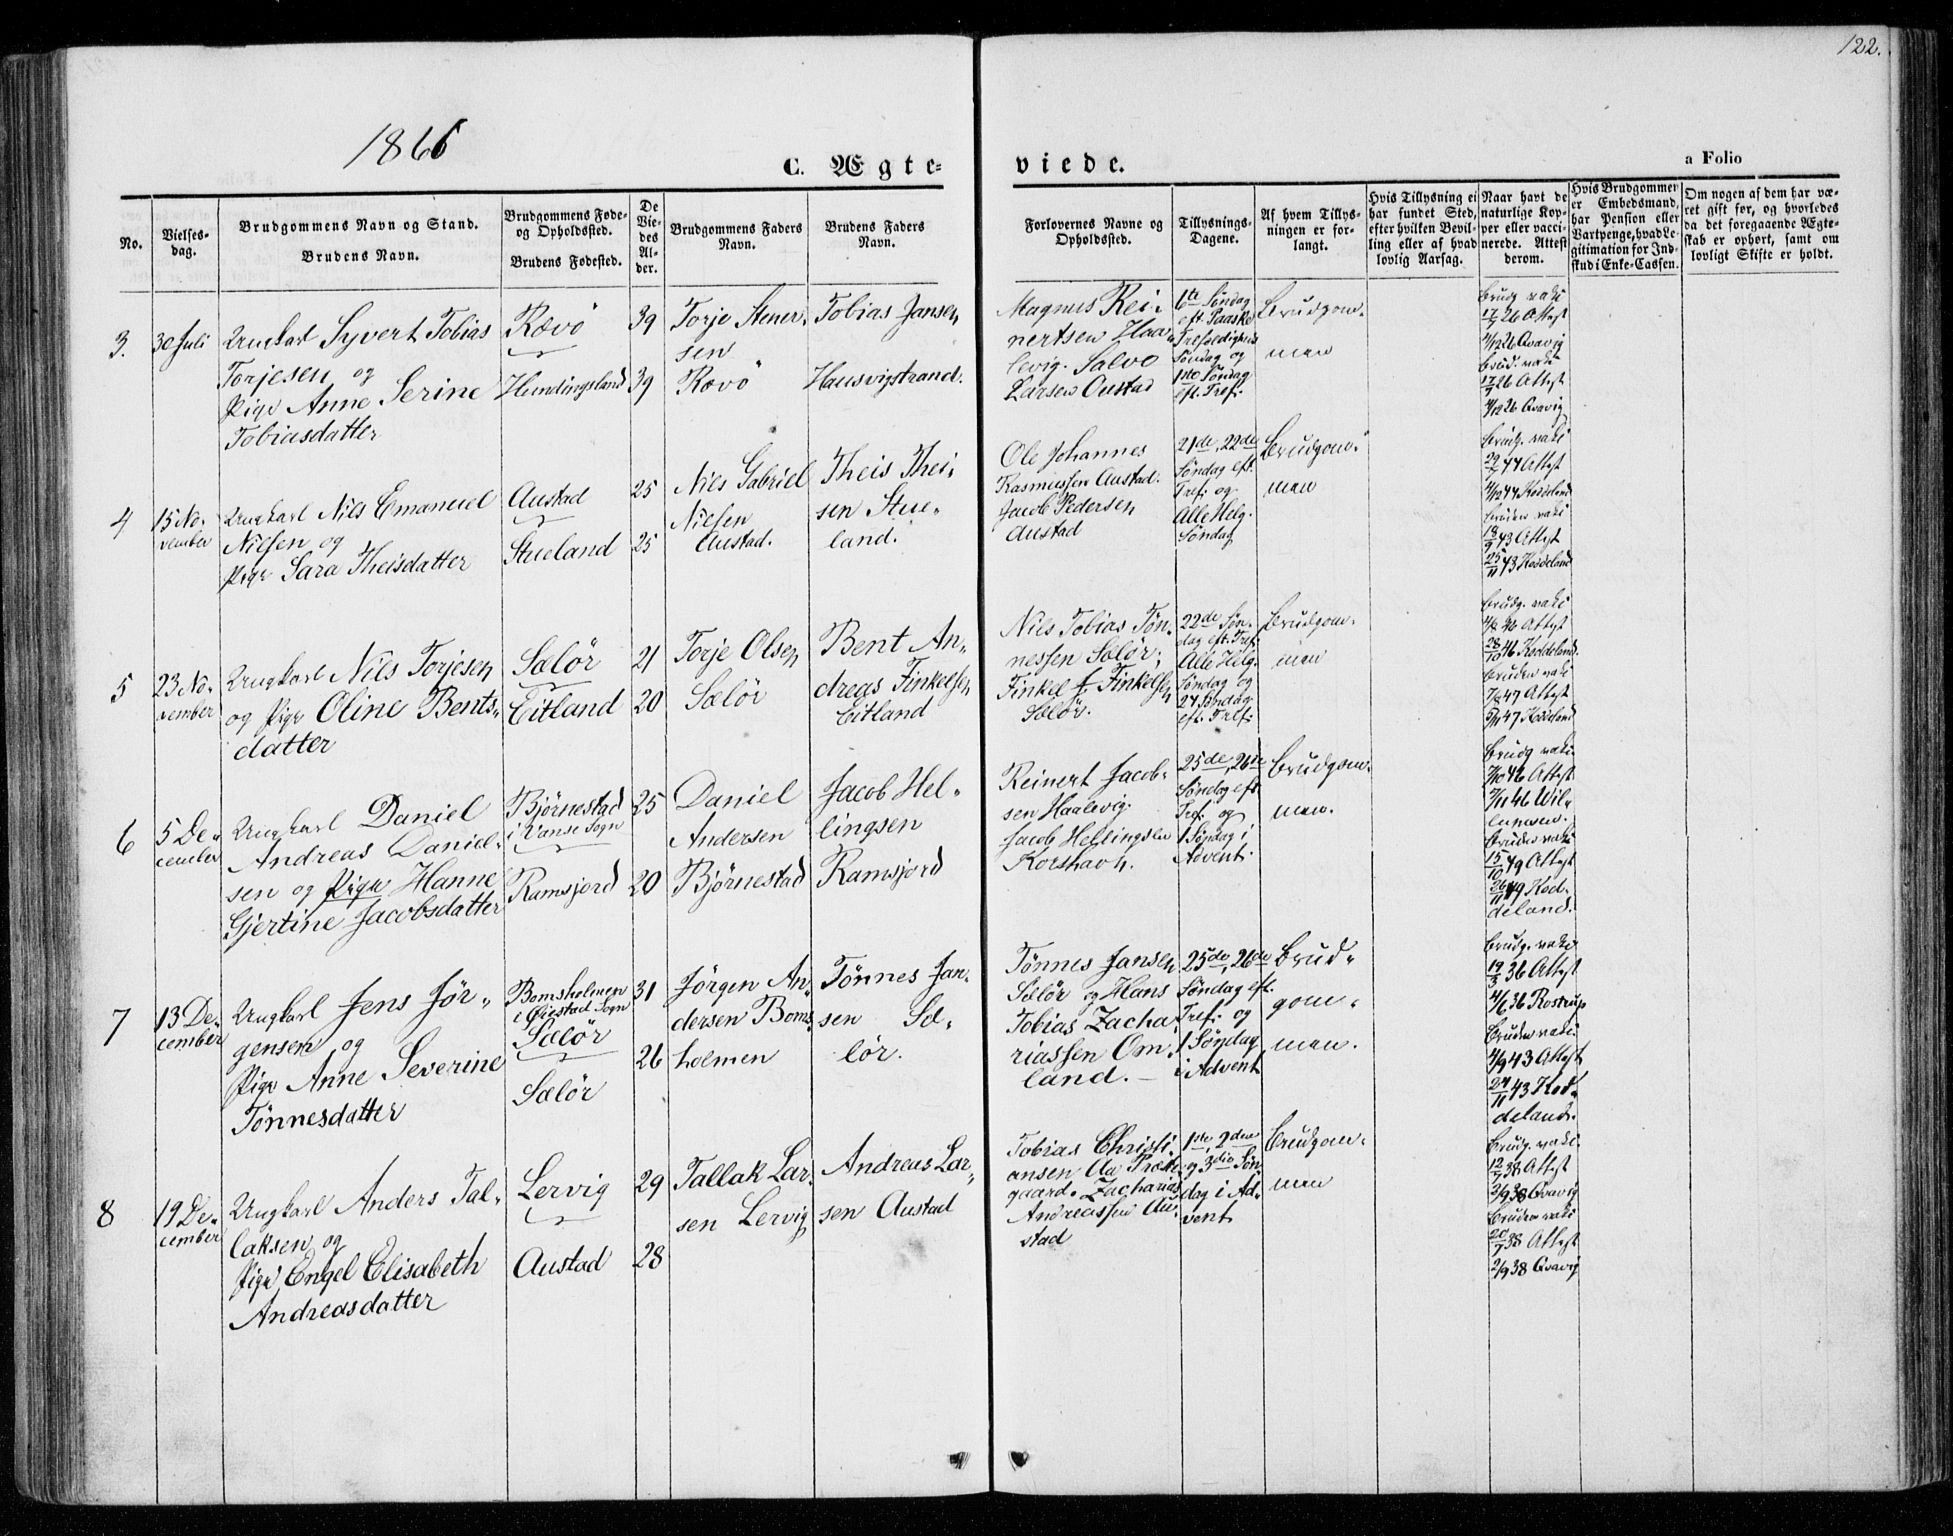 122.
1866
C. Ægte-
viede.
a Folio
No.
Vielses-
dag.
Brudgommens Navn og Stand.
Brudens Navn.
Brudgommens Føde-
og Opholdssted.
Brudens Fødested.
De
Vie-
des
Al-
der.
Brudgommens Faders
Navn.
Brudens Faders
Navn.
Forlovernes Navne og
Opholdssted.
Tillysnings-
Dagene.
Af hvem Tillys-
ningen er for-
langt.
Hvis Tillysning ei
har fundet Sted,
efter hvilken Bevil-
ling eller af hvad
lovlig Aarsag.
Naar havt de
naturlige Kop-
per eller vacci-
nerede. Attest
derom.
Hvis Brudgommen
er Embedsmand,
har Pension eller
Vartpenge, hvad Le-
gitimation for Ind-
skud i Enke-Cassen.
Om nogen af dem har væ-
ret gift før, og hvorledes
da det foregaaende Ægte-
skab er ophørt, samt om
lovligt Skifte er holdt.
3.
30 Juli
Ungkarl Syvert Tobias
Torjesen og
Pige Anne Serine
Tobiasdatter
Rævö
Hundingsland
39
39
Torje Stener-
sen
Rævö
Tobias Jansen
Hausvigstrand.
Magnus Rei-
nertsen Haa-
levig. Salve
Larsen Oustad
6te Søndag
eft. Paaske
Trefoldigheds
Søndag og
1ste Søndag
eft. Tref.
Brudgom-
men
Brudg vaki
17/7 26 Attest
4/12 26 Qvavig
Brud. vaki
17/7 26 Attest
4/12 26 Qvavig
4
15 No-
vember
Ungkarl Nils Emanuel
Nielsen og
Pige Sara Theisdatter
Austad
Stueland
25
25
Nils Gabriel
Nielsen
Austad.
Theis Thei-
sen Stue-
land.
Ole Johannes
Rasmussen Austad.
Jacob Pedersen
Austad
21de, 22de
Søndag eft.
Tref. og
Alle Helg.
Søndag
Brudgom-
men
Brudg. vaki
44 Attest
4/12 44 Koddeland
Bruden vaki
18/9 43 Attest
25/11 43 Koddeland
5
23 No-
vember
Ungkarl Nils Torjesen
og Pige Oline Bents-
datter
Sælör
Eitland
21
20
Torje Olsen
Sælör
Bent An-
dreas Finkelsen
Eitland
Nils Tobias Tøn-
nessen Sælör.
Finkel F. Finkelsen
Sælör.
22de Søn-
dag eft. Tref.
Alle Helg.
Søndag og
24 Søndag
eft. Tref.
Brudgom-
men
Brudg. vaki
46 Attest
28/10 46 Koddeland.
Bruden vaki
47 Attest
47 Koddeland
6
5 De-
cember
Ungkarl Daniel
Andreas Daniel-
sen og Pige Hanne
Gjertine Jacobsdatter
Bjørnestad
i Vanse Sogn
Ramsjord
25
20
Daniel
Andersen
Bjørnestad
Jacob Hel-
lingsen
Ramsjord
Reinert Jacob-
sen Haalevig.
Jacob Hellingsen
Korshavn.
25de, 26de
Søndag eft
Tref. og
1 Søndag i
Advent.
Brudgom-
men.
Brudg vaki
7/10 46 Attest
7/11 46 Wil-
lumsen.
Bruden vaki
15/10 49 Attest
26/11 49 Kod-
deland.
7
13 De-
cember
Ungkarl Jens Jör-
gensen og
Pige Anne Severine
Tönnesdatter
Bomsholmen
i Øiestad Sogn
Sælör
Sælör
31
26
Jörgen An-
dersen Boms-
holmen
Tönnes Jan-
sen Sæ-
lör.
Tönnes Jansen
Sælör og Hans
Tobias Zacha-
riassen Om-
land.
25de, 26de
Søndag eft.
Tref. og
1 Søndag
i Advent
Brud-
gom-
men.
Brudg. vaki
19/3 36 Attest
4/6 36 Rostrup
Bruden vaki
4/9 43 Attest
24/11 43 Kod-
deland.
8
19 De-
cember
Ungkarl Anders Tal-
laksen og
Pige Engel Elisabeth
Andreasdatter
Lervig
Austad
29
28
Tallak Lar-
sen Lervig
Andreas Lar-
sen Austad
Tobias Christi-
ansen Aa Præste-
gaard. Zacharias
Andreassen Au-
stad
1ste, 2den
og 3die Søn
dag i Ad-
vent
Brudgom-
men
Brudg. vaki.
12/7 38 Attest
2/9 38 Qvavig
Bruden vaki
20/7 38 Attest
2/9 38 Qvavig